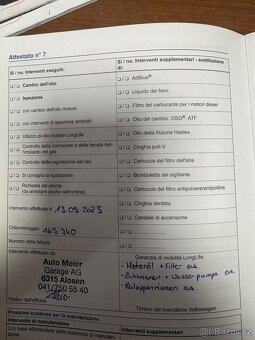 Attestato n° 7
Sì / no. Interventi eseguiti:
Cambio dell'olio
Ispezione
con cambio dell'olio motore
con interventi di ispezione ampliati
Utilizzo di olio motore LongLife
Controllo della corrosione e della tenuta del-
l'impianto del gas
Controllo della regolazione dei fari
Si consiglia la riparazione
Richiesta del cliente
(da annotare anche nell'ordine)
Intervento effettuato il 13.09.2023
Chilometraggio: 169 340
Numero della fattura:
Intervento effettuato da
Auto Meier
Garage AG
6315 Alosen
041/750 55 40
Timbro dell'officina
Sì / no. Interventi supplementari - sostituzione
di:
AdBlue®
Liquido dei freni
Filtro del carburante per i motori diesel
Olio del cambio: DSG®, ATF
Olio della frizione Haldex
Cinghia poli-V
Cartuccia del filtro dell'aria
Bomboletta del sigillante
Cartuccia del filtro antipolvere/antipolline
Cinghia dentata
Candele di accensione
Garanzia di mobilità LongLife:
- Motoröl + Filter ers.
- Zahnriemen + Wasserpumpe ers.
- Keilrippenriemen ers.
Timbro del rivenditore Volkswagen
Prossima scadenza per la manutenzione
Interventi supplementari